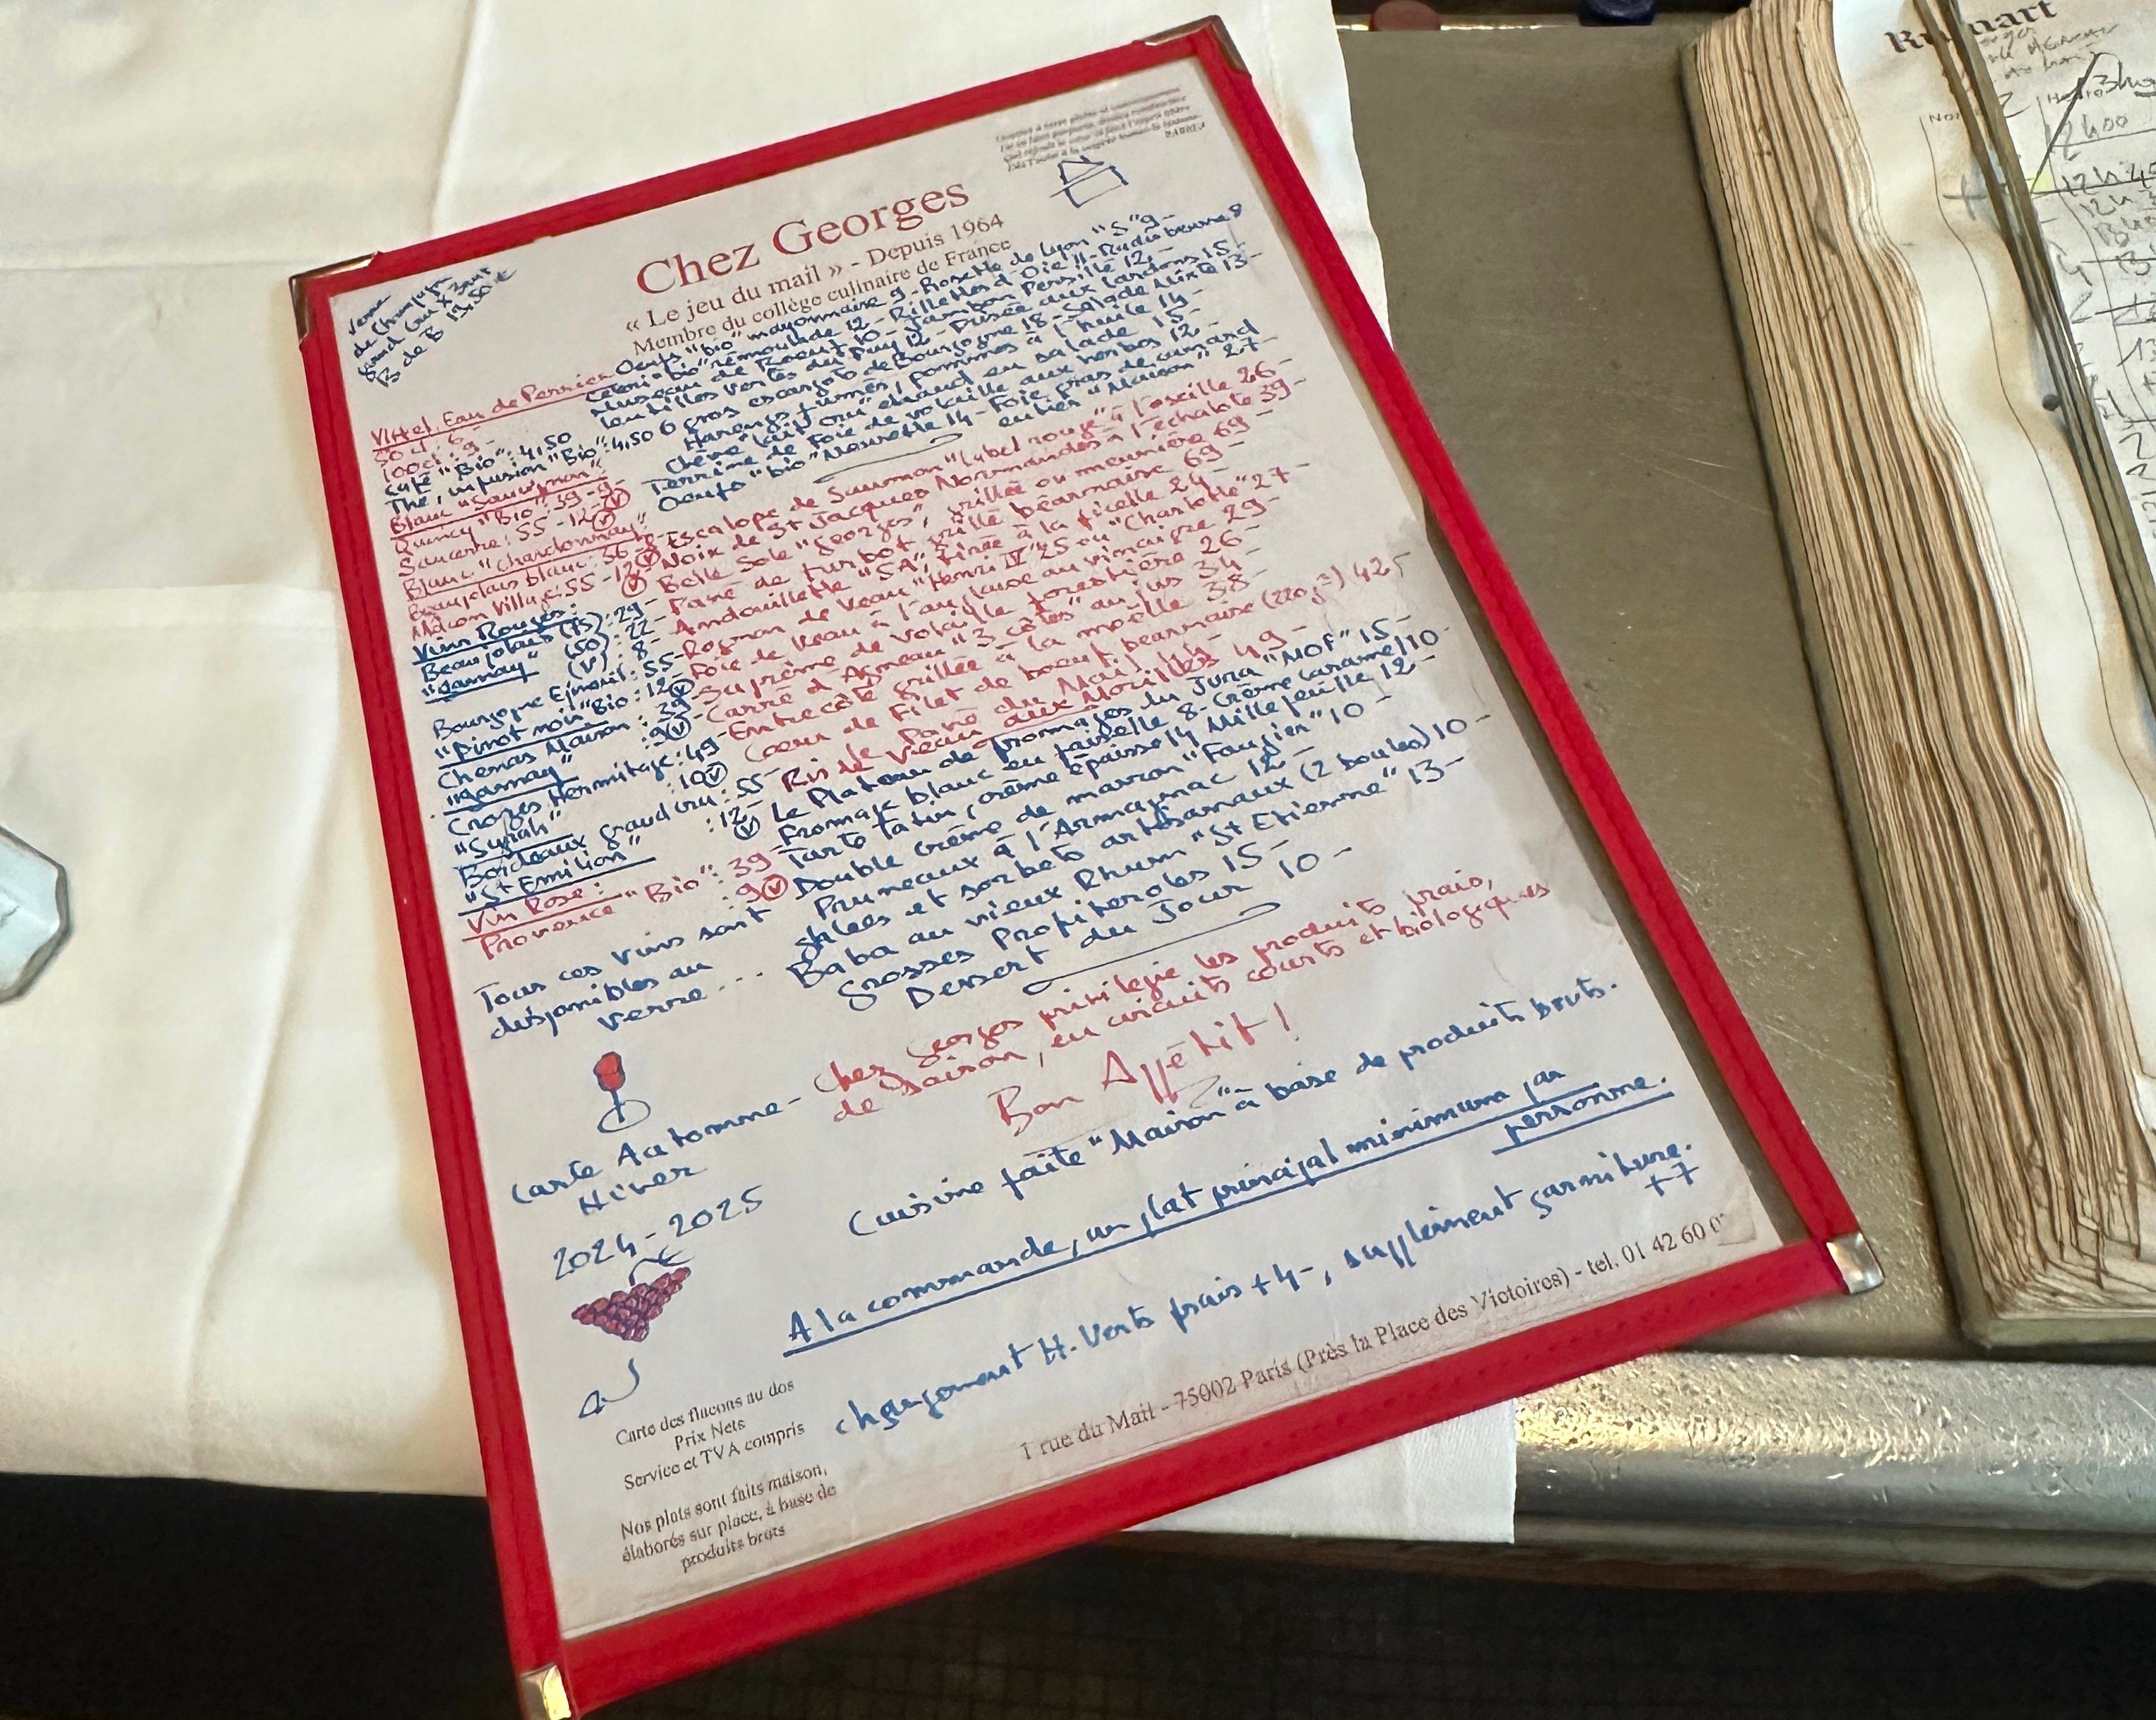 Chez Georges
« Le jeu du mail » - Depuis 1964
Membre du collège culinaire de France
Verre
de Champagne
grand cru X
B de B 19,50 €
Oeufs "bio" mayonnaise 9 - Rosette de Lyon "S" 9 -
Céleri "bio" rémoulade 12 - Rillettes d'Oie 11 - Radis beurre 8
Museau de Boeuf 10 - Jambon Persillé 12 -
Lentilles vertes du Puy 12 - Frisée aux lardons 15 -
6 gros escargots de Bourgogne 18 - Salade Mixte 13 -
Harengs fumés, pommes à l'huile 14 -
Chèvre "lait cru" chaud en salade 15 -
Terrine de Foie de volaille aux herbes 12 -
Oeufs "bio" Meurette 14 - Foie gras de canard
entier "Maison" 27 -
Escalope de Saumon "Label rouge" à l'oseille 26 -
Noix de St Jacques Normandes à l'échalote 39 -
Belle Sole "Georges", grillée ou meunière 69 -
Pavé de turbot grillé béarnaise 69 -
Andouillette "5A", tirée à la ficelle 24 -
Rognon de Veau "Henri IV" 25 ou "Charlotte" 27 -
Foie de Veau à l'anglaise au vinaigre 29 -
Suprême de volaille forestière 26 -
Carré d'Agneau "3 côtes" au jus 34 -
Entrecôte grillée à la moëlle 38 -
Coeur de Filet de boeuf béarnaise (220 grs) 42 -
Pavé du Mail 44 -
Ris de Veau aux Morilles 49 -
Le Plateau de fromages du Jura "MOF" 15 -
Fromage blanc en faisselle 8 - Crème Caramel 10 -
Tarte Tatin, crème épaisse 14 Mille feuille 12 -
Double crème de marron "Faugier" 10 -
Pruneaux à l'Armagnac 12 -
glaces et sorbets artisanaux (2 boules) 10 -
Baba au vieux Rhum "St Etienne" 13 -
grosses Profiteroles 15 -
Dessert du Jour 10 -
Vittel, Eau de Perrier
50 cl : 6 -
100 cl : 9 -
Café "Bio" : 4,50
Thé, infusion "Bio" : 4,50
Blanc "Sauvignon"
Quincy "Bio" : 39 - 9 - V
Sancerre : 55 - 12 - V
Blanc "Chardonnay" :
Beaujolais blanc : 36 - 8 - V
Mâcon Village : 55 - 12 - V
Vins Rouges :
Beaujolais (75) : 29 -
"Gamay" (50) : 22 -
(V) : 8 -
Bourgogne Epineuil : 55 -
"Pinot noir" Bio : 12 - V
Chenas Maison : 39 -
"Gamay" : 9 V
Crozes Hermitage : 49 -
"Syrah" : 10 V
Bordeaux grand cru : 55 -
"St Emilion" : 12 - V
Vin Rosé :
Provence "Bio" : 39 -
: 9 V
Tous ces vins sont
disponibles au
verre ...
Chez Georges privilégie les produits frais,
de saison, en circuits courts et biologiques
Bon Appétit !
Cuisine faite "Maison" à base de produits bruts.
A la commande, un plat principal minimum par
personne.
changement H. Verts frais + 4 -, supplément garniture.
+ 7
Carte Automne -
Hiver
2024 - 2025
Carte des flacons au dos
Prix Nets
Service et TVA compris
Nos plats sont faits maison,
élaborés sur place, à base de
produits bruts
1 rue du Mail - 75002 Paris (Près la Place des Victoires) - tel. 01 42 60 0
Ruinart
12h00